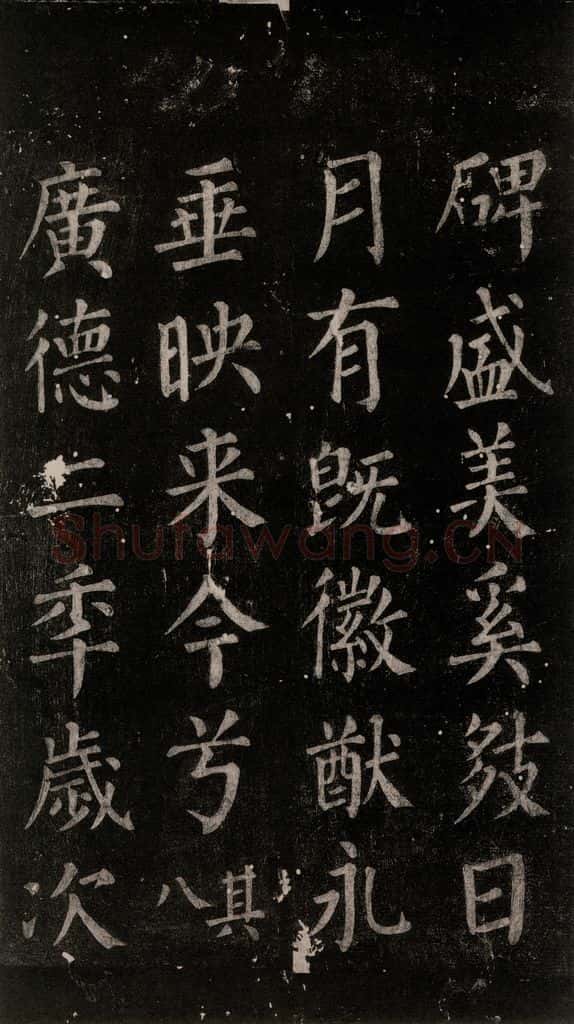 碑盛美奚日
月有既徽猷永
垂映来今兮其八
廣德二秊歲次
Shufawang.CN